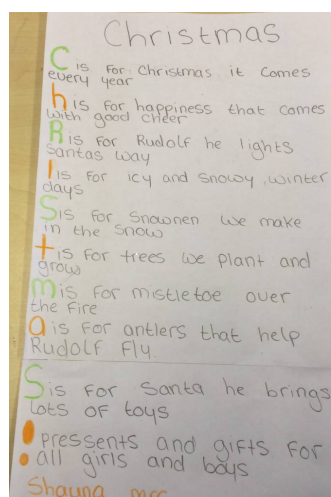 Christmas
C is for Christmas it comes
every year
h is for happiness that comes
with good cheer
R is for Rudolf he lights
Santas way
I is for icy and snowy winter
days
S is for snowmen we make
in the snow
t is for trees we plant and
grow
m is for mistletoe over
the fire
a is for antlers that help
Rudolf fly
S is for Santa he brings
lots of toys
! pressents and gifts for
all girls and boys
Shauna mcc